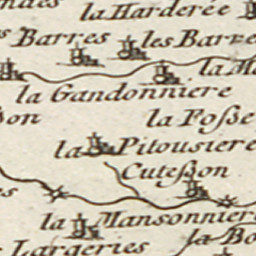 la Harderée
Barres les Barre
la Gandonniere
la Foſse
la Pitousiere
Cuteſson
la Mansonniere
Largeries